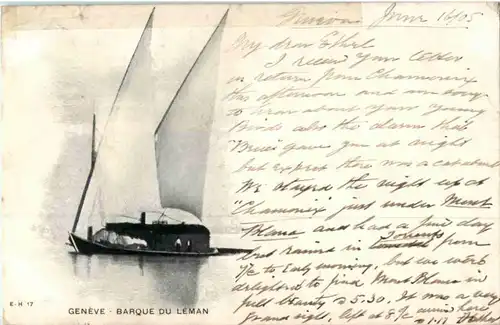 Geneva June 16/05
My dear Ethel
I recd your letter
on return from Chamonix
this afternoon and am sorry
to learn about your young
Birds also the alarm that
gave you at night
but expect there was a cat about
We stayed the night up at
"Chamonix" just under Mont
Blanc and had a fine day
but rained in torrents from
to early morning, but we were
delighted to find Mont Blanc in
full beauty @ 5.30. It was a very
grand sight, left at
E-H 17
GENÈVE - BARQUE DU LÉMAN